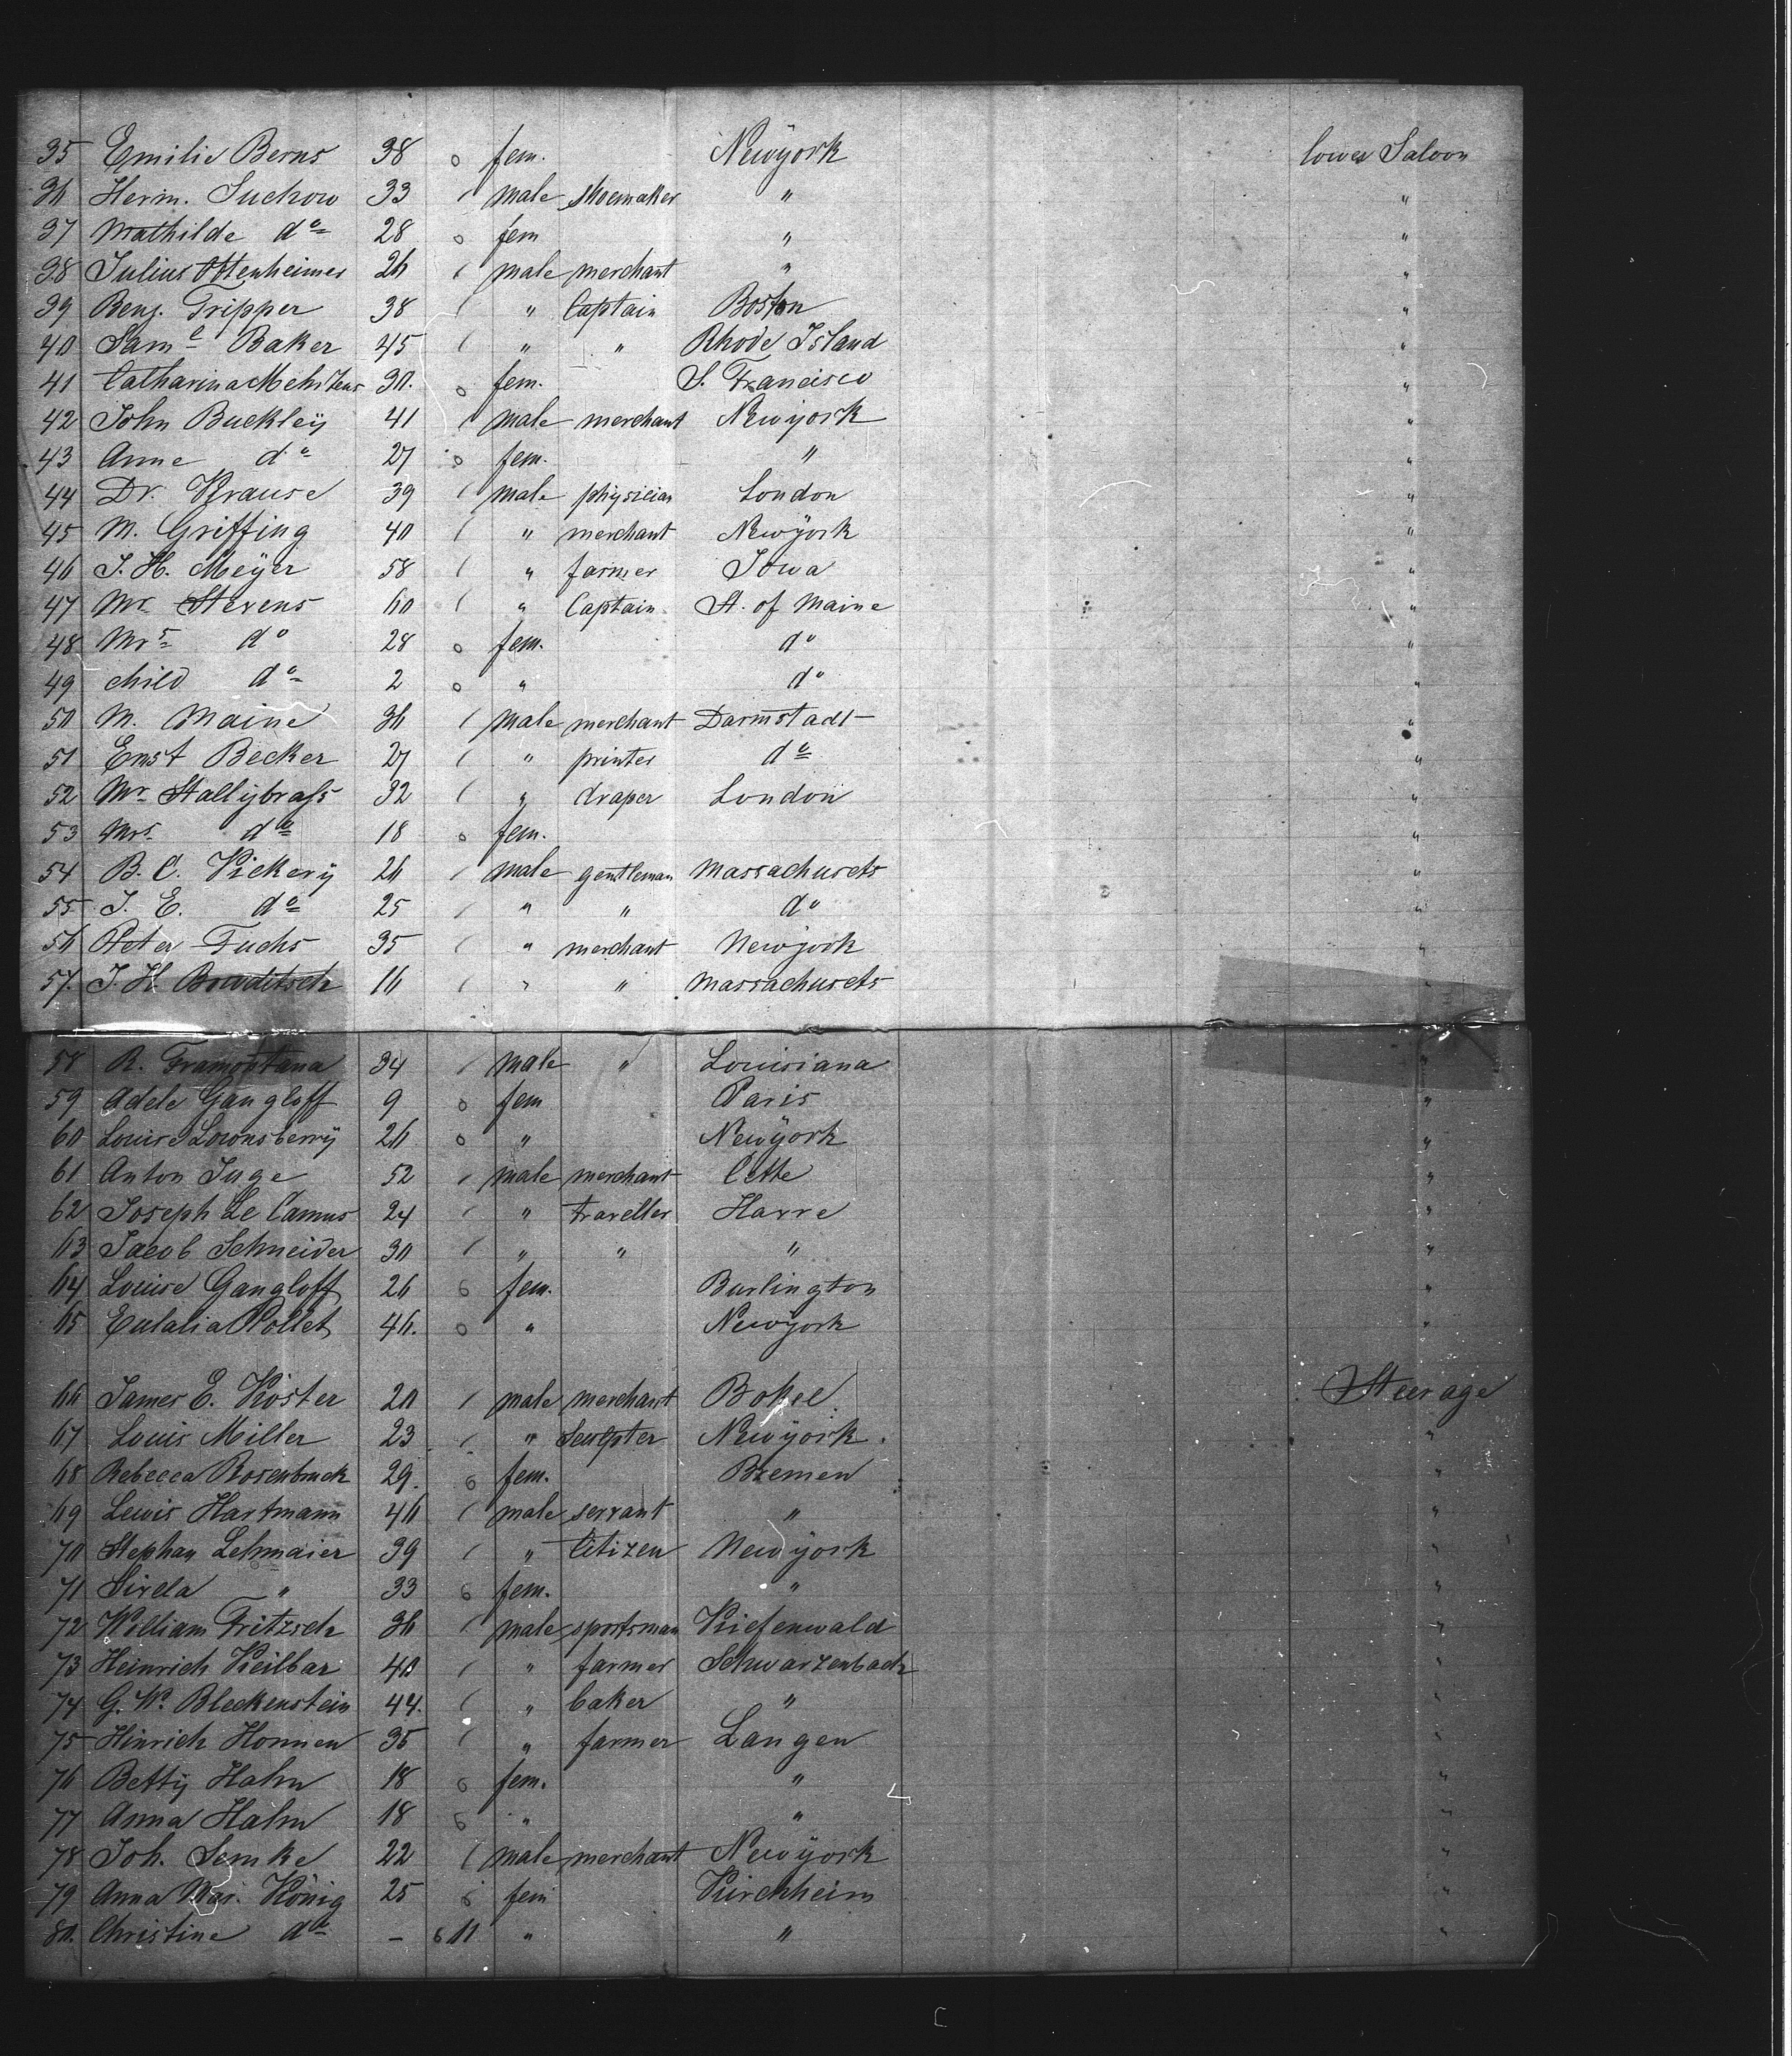 35 Emilie Berns 38 0 fem. Newÿork lower Saloon
36 Herm. Suchow 33 1 male shoemaker " "
37 Mathilde do 28 0 fem " "
38 Julius Ottenheimer 26 1 male merchant " "
39 Benj. Tripper 38 1 " Captain Boston "
40 Saml Baker 45 1 " " Rhode Island "
41 Catharina Mehrtens 30. 0 fem. S. Francisco "
42 John Buckleÿ 41 1 male merchant Newÿork "
43 Anne do 27 0 fem. " "
44 Dr. Krause 39 1 male physician London "
45 M. Griffing 40 1 " merchant Newÿork "
46 J. H. Meÿer 58 1 " farmer Iowa "
47 Mr Stevens 60 1 " Captain St. of Maine "
48 Mrs do 28 0 fem. do "
49 child do 2 0 " do "
50 M. Maine 36 1 male merchant Darmstadt "
51 Ernst Becker 27 1 " printer do "
52 Mr Stallÿbraſs 32 1 " draper London "
53 Mrs do 18 0 fem. "
54 B. C. Vickerÿ 26 1 male gentleman Massachusets "
55 J. E. do 25 1 " " do "
56 Peter Fuchs 35 1 " merchant Newÿork "
57. J. H. Bowditsch 16 1 " " Massachusets "
58 R. Tramontana 34 1 male " Louisiana "
59 Adele Gangloff 9 0 fem Paris "
60 Louise Lownsberrÿ 26 0 " Newÿork "
61 Anton Juge 52 1 male merchant Cette "
62 Joseph Le Camus 24 1 " traveller Havre "
63 Jacob Schneider 30 1 " " " "
64 Louise Gangloff 26 0 fem. Burlington "
65 Eulalia Pollet 46. 0 " Newÿork "
66 James E. Köster 20 1 male merchant Steerage
67 Louis Miller 23 1 " Sculpter Newÿork. "
68 Rebecca Rosenbrock 29. 0 fem. Bremen "
69 Lewis Hartmann 46 1 male servant " "
70 Stephan Lehmaier 39 1 " Citizen Newÿork "
71 " 33 0 fem. " "
72 William Fritzsch 36 1 male sportsman Kiefenwald "
73 Heinrich Keilbar 40 1 " farmer Schwarzenbach "
74 G. W. Bleckenstein 44. 1 " baker " "
75 Hinrich Honnen 35 1 " farmer Langen "
76 Bettÿ Hahn 18 0 fem. " "
77 Anna Hahn 18 0 " " "
78 Joh. Lemke 22 1 male merchant Newÿork "
79 Anna Mar. König 25 0 fem Kirchheim "
80. Christine do – 0 11 " " "